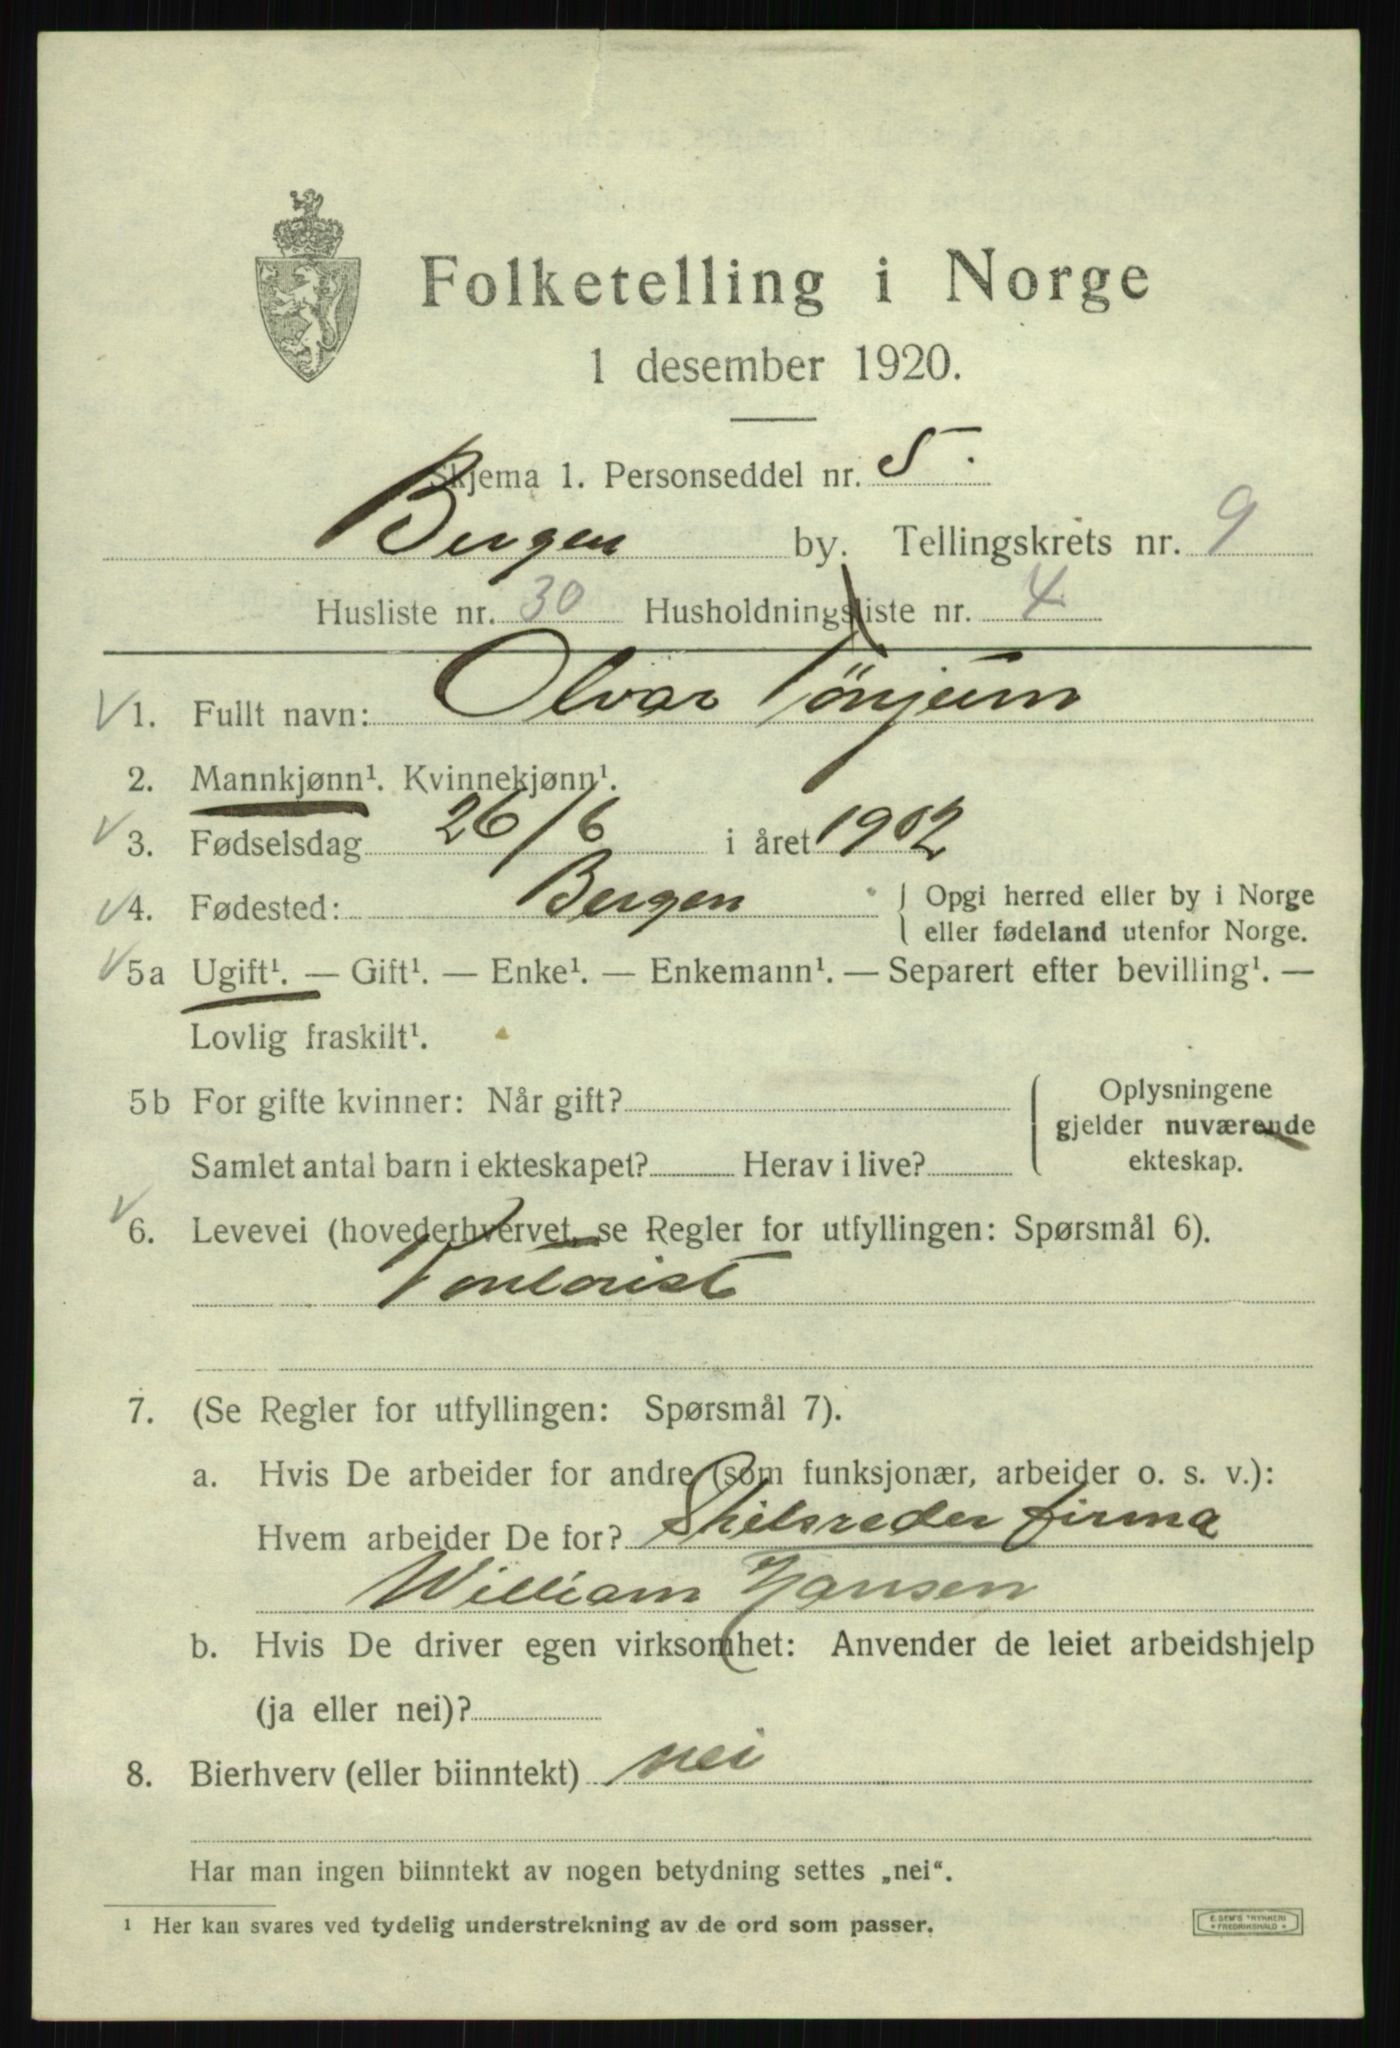 Folketelling i Norge
1 desember 1920.
Skjema 1. Personseddel nr. 5.
Bergen by. Tellingskrets nr. 9
Husliste nr. 30 Husholdningsliste nr. 4
1. Fullt navn: Olvar Tönjum
2. Mannkjønn¹. Kvinnekjønn¹.
3. Fødselsdag 26/6 i året 1902
4. Fødested: Bergen } Opgi herred eller by i Norge
eller fødeland utenfor Norge.
5a Ugift¹. — Gift¹. — Enke¹. — Enkemann¹. — Separert efter bevilling¹. —
Lovlig fraskilt¹.
5b For gifte kvinner: Når gift? { Oplysningene
gjelder nuværende
Samlet antal barn i ekteskapet? Herav i live? ekteskap.
6. Levevei (hovederhvervet, se Regler for utfyllingen: Spørsmål 6).
Kontorist
7. (Se Regler for utfyllingen: Spørsmål 7).
a. Hvis De arbeider for andre (som funksjonær, arbeider o. s. v.):
Hvem arbeider De for? Skibsreder firma
William Hansen
b. Hvis De driver egen virksomhet: Anvender de leiet arbeidshjelp
(ja eller nei)?
8. Bierhverv (eller biinntekt) nei
Har man ingen biinntekt av nogen betydning settes „nei“.
¹ Her kan svares ved tydelig understrekning av de ord som passer.
E. SEM'S TRYKKERI
* FREDRIKSHALD *